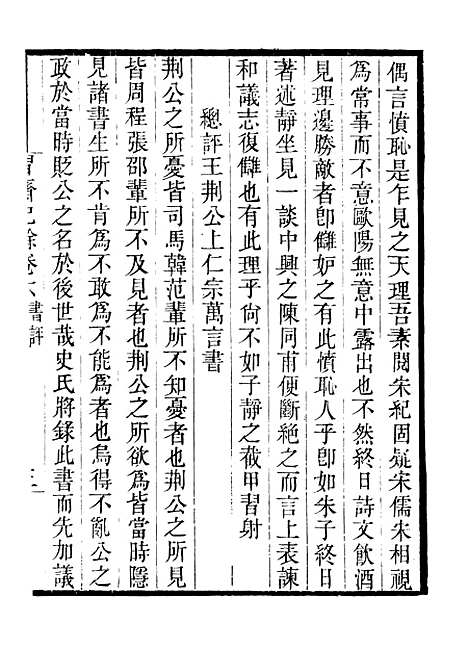 偶言憤恥是乍見之天理吾素閱朱紀固疑宋儒宋相視
爲常事而不意歐陽無意中露出也不然終日詩文飲酒
見理邊勝敵者卽讎妒之有此憤恥人乎卽如朱子終日
著述靜坐見一談中興之陳同甫便斷絶之而言上表諫
和議志復讎也有此理乎尙不如子靜之截甲習射
總評王荆公上仁宗萬言書
荆公之所憂皆司馬韓范輩所不知憂者也荆公之所見
皆周程張邵輩所不及見者也荆公之所欲爲皆當時隱
見諸書生所不肯爲不敢爲不能爲者也烏得不亂公之
政於當時貶公之名於後世哉史氏將錄此書而先加議
習齋記餘卷六書評